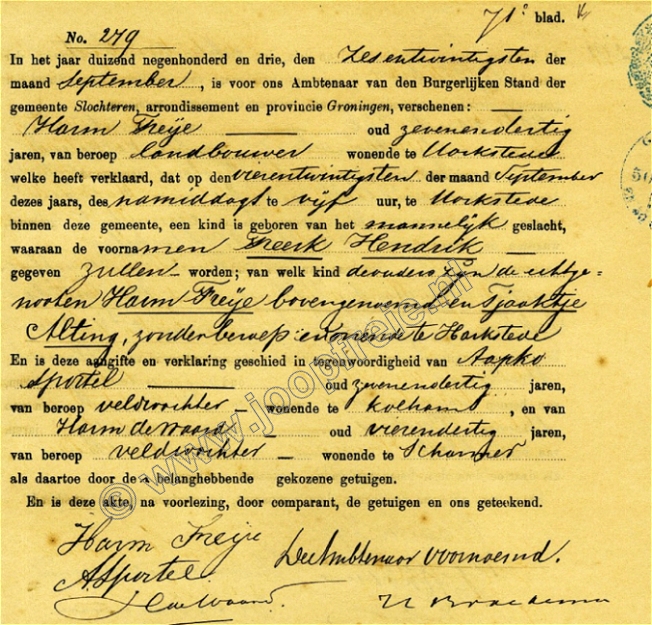 71e blad.
No. 279
In het jaar duizend negenhonderd en drie, den Zesentwintigsten der
maand September, is voor ons Ambtenaar van den Burgerlijken Stand der
gemeente Slochteren, arrondissement en provincie Groningen, verschenen:
Harm Freije oud zevenendertig
jaren, van beroep landbouwer wonende te Harkstede
welke heeft verklaard, dat op den vierentwintigsten der maand September
dezes jaars, des namiddags te vijf uur, te Harkstede
binnen deze gemeente, een kind is geboren van het mannelijk geslacht,
waaraan de voornamen Freerk Hendrik
gegeven zullen worden; van welk kind de ouders zijn de echtge-
nooten Harm Freije bovengenoemd en Tjaaktje
Alting, zonder beroep, wonende te Harkstede
En is deze aangifte en verklaring geschied in tegenwoordigheid van Aapko
Sportel oud zevenendertig jaren,
van beroep veldwachter wonende te Kolham, en van
Harm de Waard oud vierendertig jaren,
van beroep veldwachter wonende te Scharmer
als daartoe door de belanghebbende gekozene getuigen.
En is deze akte, na voorlezing, door comparant, de getuigen en ons geteekend.
Harm Freije
De Ambtenaar voornoemd.
A Sportel.
H de Waard.
© www.joopfreie.nl